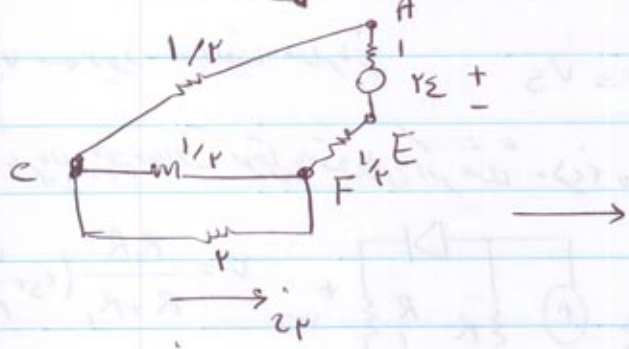 A
۱/۲
۱
۲٤ +
-
E
۱/۲
C
۱/۲
F
۲
i۲